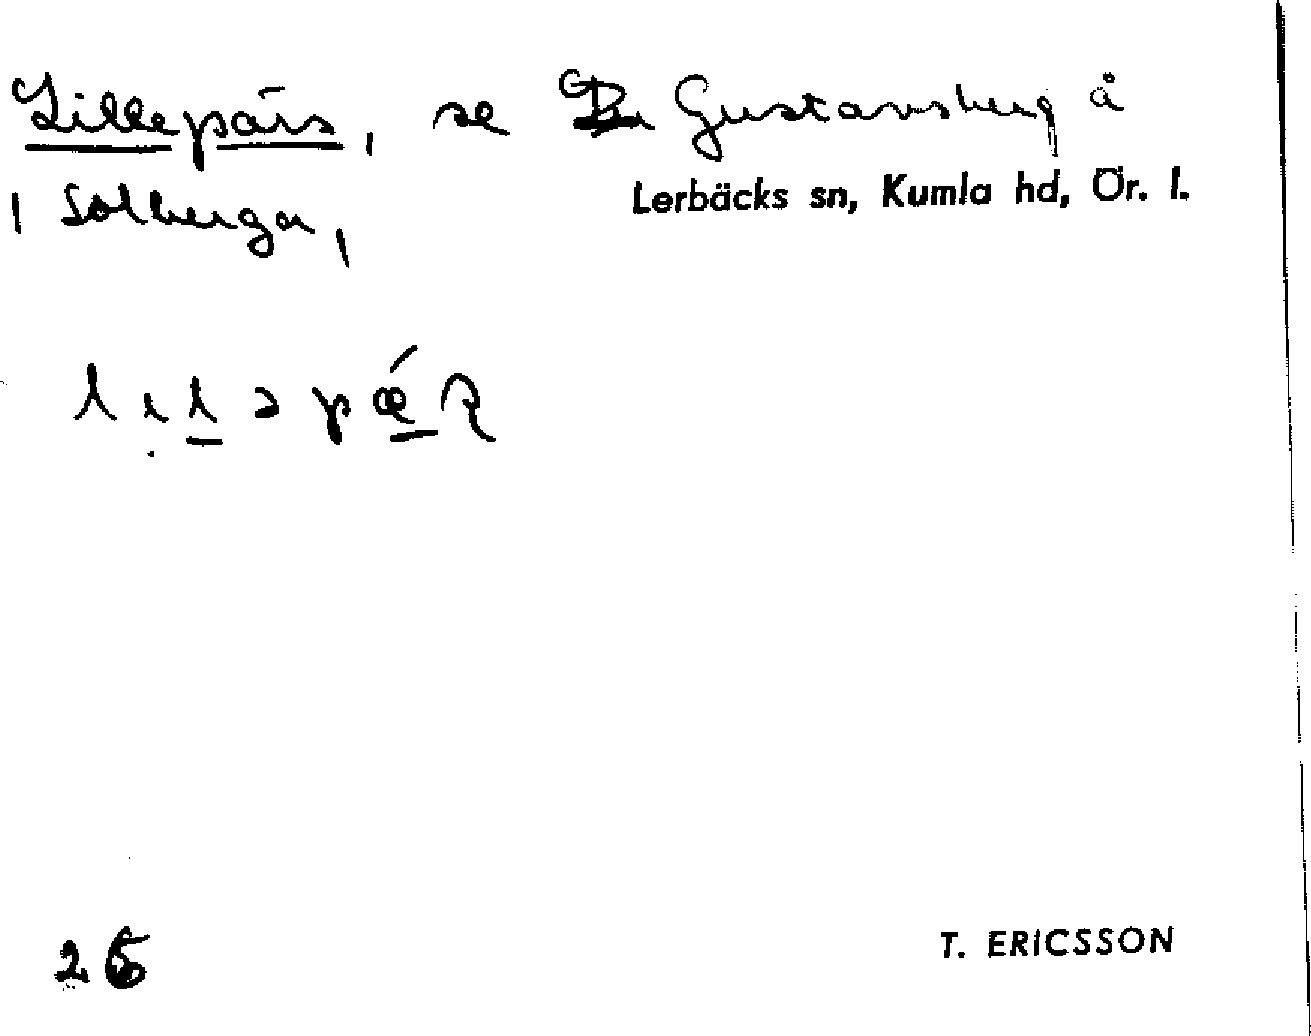 Lillepärs, se Gustavsberg å
Lerbäcks sn, Kumla hd, Ör. l.
| Solberga |
26
T. ERICSSON